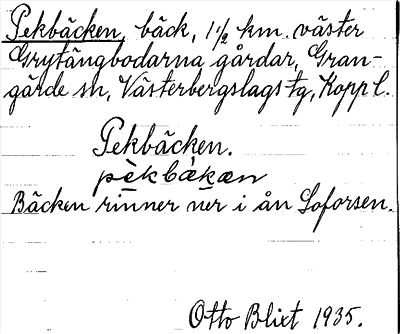 Pekbäcken, bäck, 1½ km. väster
Grytängbodarna gårdar, Gran-
gärde sn, Västerbergslags tg, Kopp l.
Pekbäcken.
pèkbä̀kæn
Bäcken rinner ner i ån Loforsen.
Otto Blixt 1935.